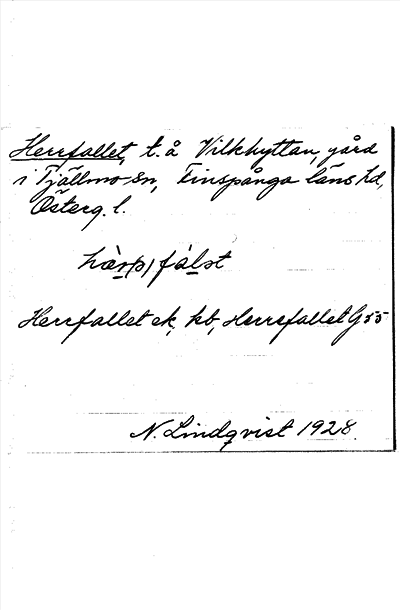 Herrfallet, t. å Vilkhyttan, gård
i Tjällmo sn, Finspånga läns hd,
Österg. l.
hær(r)fálət
Herrfallet ek, kb, Herrefallet G 55
N. Lindqvist 1928